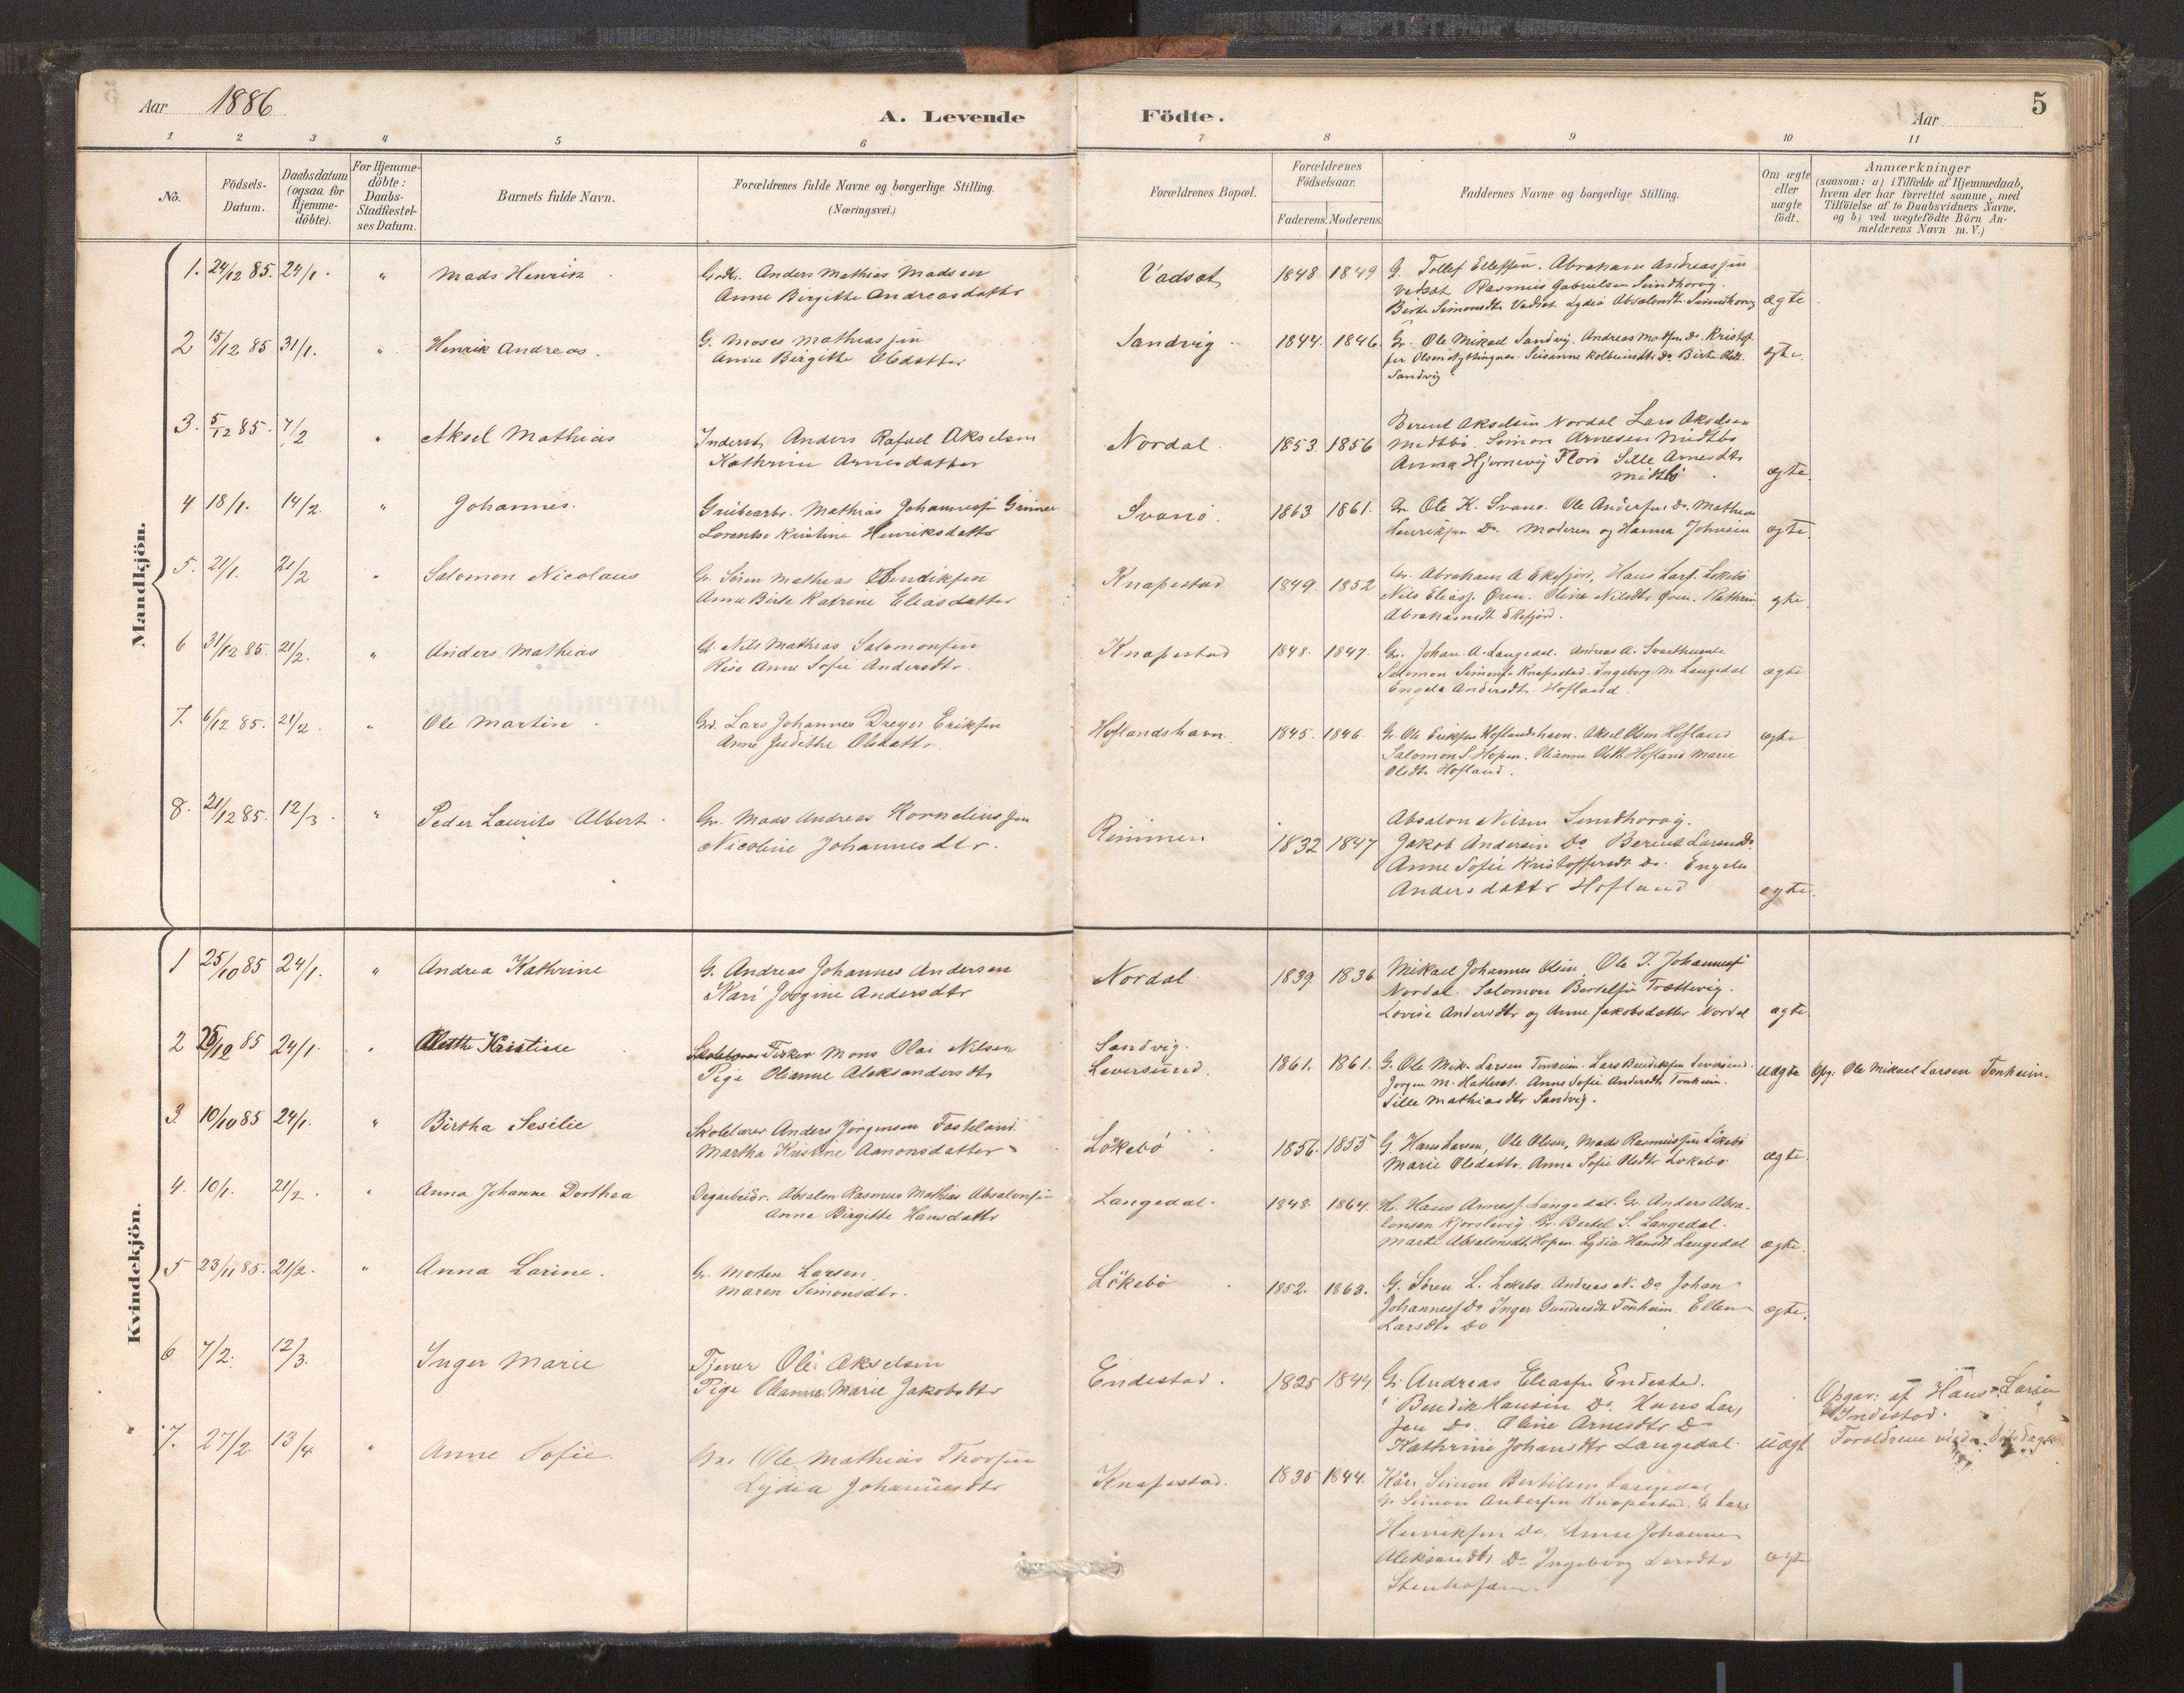 Aar 1886
A. Levende
Födte.
Aar
5
1 2 3 4 5 6 7 8 9 10 11
No.
Födsels-Datum.
Daabsdatum (ogsaa for Hjemme-döbte).
For Hjemme-döbte: Daabs-Stadfæstel-ses Datum.
Barnets fulde Navn.
Forældrenes fulde Navne og borgerlige Stilling. (Næringsvei.)
Forældrenes Bopæl.
Forældrenes Födselsaar.
Faderens. Moderens.
Faddernes Navne og borgerlige Stilling.
Om ægte eller uægte födt.
Anmærkninger
(saasom: a) i Tilfælde af Hjemmedaab,
hvem der har forrettet samme, med
Tilföielse af to Daabsvidners Navne,
og b) ved uægtefödte Börn An-
melderens Navn m.V.)
Mandkjön.
1. 24/12 85. 24/1. " Mads Henrik
Anders Mathias Madsen
Anne Birgitte Andreasdatter
Vadsøt 1848 1849
G. Tollef Ellefsen. Abraham Andreassen
Vadsøt Rasmus Gabrielsen Svindhovig.
Birte Simonsdtr Vadset Lydia Absalondtr Svindhovig ægte
2 15/12 85 31/1. " Henrik Andreas.
G. Moses Mathiassen
Anne Birgitte Olsdatter
Sandvig 1844. 1846.
Gr. Ole Mikael Sandvig. Andreas Madsen Do. Kristof-
fer Olsen Susanne Kolbeinsdtr Do Birte Olsdt.
Sandvig
ægte.
3. 5/12 85. 7/2 " Aksel Mathias
Inderst Anders Rafael Akselsen
Kathrine Arnesdatter
Nordal. 1853. 1856
Berent Akselsen Nordal Lars Akselsen
Midtbö. Simon Arnesen Midtbö
Anna Hjornevig Florö Sille Arnesdtr
Midtbö
ægte.
4 18/1. 14/2. " Johannes.
Grubearb. Mathias Johannessen
Lorentse Kristine Henriksdatter
Svanö. 1863 1861.
Gr. Ole K. Svanö. Ole Andersen Do. Mathias
Henriksen Do. Moderen og Hanna Johnsen ægte.
5. 21/1. 21/2 " Salomon Nicolaus
Gr. Sören Mathias Bendiksen
Anne Birte Katrine Eliasdatter
Knapestad 1849. 1852
Gr. Abraham A Eksfjord, Hans Lars. Lökebö
Nils Eliass. Øren. Oline Nilsdtr Øren. Kathrine
Abrahamsdt Eksfjord.
ægte.
6 31/12 85. 21/2. " Anders Mathias
G. Nils Mathias Salomonsen
Rise Anne Sofie Andersdtr.
Knapestad 1848. 1847.
Gr. Johan A. Langedal. Andreas A. Svarthumle
Salomon Simons. Knapestad. Ingeborg M. Langedal
Engela Andersdtr. Hofland.
ægte
7. 6/12 85. 21/2. " Ole Martin
Gr. Lars Johannes Dreyer Eriksen
Anne Judithe Olsdattr.
Hoflandshavn. 1845. 1846.
Gr. Ole Eriksen Hoflandshavn. Aksel Olsen Hofland
Salomon S. Hopen. Olianne Olsdt. Hofland Marie
Olsdtr Hofland.
ægte
8. 21/12 85. 12/3. " Peder Laurits Albert.
Gr. Mads Andreas Kornelius sen
Nicoline Johannesdtr.
Rimmen 1832 1847
Absalon Nilsen Svindhovig.
Jakob Andersen Do Berent Larsen Do.
Anne Sofie Kristoffersdt Do. Engela
Andersdattr Hofland
ægte.
Kvindekjön.
1 25/10 85 24/1. " Andrea Kathrine
G. Andreas Johannes Andersen
Kari Jorgine Andersdtr
Nordal 1839. 1836
Mikael Johannes Olsen, Ole I. Johanness
Nordal. Salomon Bertelsen Trættevig.
Lovise Andersdtr og Anne Jakobsdatter Nordal ægte.
2 25/12 85 24/1. " Alette Kristine
Skolelærer Fisker Mons Olai Nilsen
Pige Olianne Aleksandersdtr
Sandvig.
Leversund. 1861. 1861.
G. Ole Mik. Larsen Tonheim. Lars Bendiksen Leversund.
Jorgen M. Hatleset. Anne Sofie Andersdt. Tonheim.
Sille Mathiasdtr Sandvig.
uægte Opg: Ole Mikael Larsen Tonheim.
3. 10/10 85 24/1. " Birtha Sesilie
Skolelærer Anders Jörgensen Fasteland
Martha Kristine Aamonsdatter
Lökebö 1856. 1855
G. Hans Larsen, Ole Olsen, Mads Rasmussen Lökebö
Marie Olsdattr. Anne Sofie Olsdtr Lokebö.
ægte.
4. 10/1. 21/2. " Anna Johanne Dorthea
Dagarbeidr. Absalon Rasmus Mathias Absalonsen
Anne Birgitte Hansdattr
Langedal. 1848. 1864.
H. Hans Arness. Langedal. Gr. Anders Absa-
lonsen Kjorslevig Gr. Bertel S. Langedal.
Marte Absalonsdt. Hopen. Lydia Hansdt Langedal ægte.
5 23/11 85. 21/2. " Anna Larine.
Gr. Morten Larsen
Maren Simonsdtr.
Lökebö 1852. 1863.
G. Sören L. Lokebö. Andreas N. Do Johan
Johanness Do Inger Gundersdt Tonheim. Ellen
Larsdtr Do
ægte.
6 7/2. 12/3. Inger Marie
Tjener Ole Akselsen
Pige Olianne Marie Jakobsdtr
Endestad. 1825 1844.
Gr. Andreas Eliassen Endestad.
Bendik Hansen Do. Hans Lar
sen Do. Oline Arnesdtr Do
Kathrine Johansdtr Langedal.
uægt
Opgav: af Hans Larsen
Endestad.
Foreldrene
7. 27/2. 13/4. " Anne Sofie.
Gr. Ole Mathias Thorsen
Lydia Johannesdtr
Knapestad. 1835 1844.
Simon Bertilsen Langedal
Gr. Simon Andersen Knapestad. G Lars
Henriksen Do. Anne Johanne
Aleksandtr Do Ingeborg Larsdtr
ægte